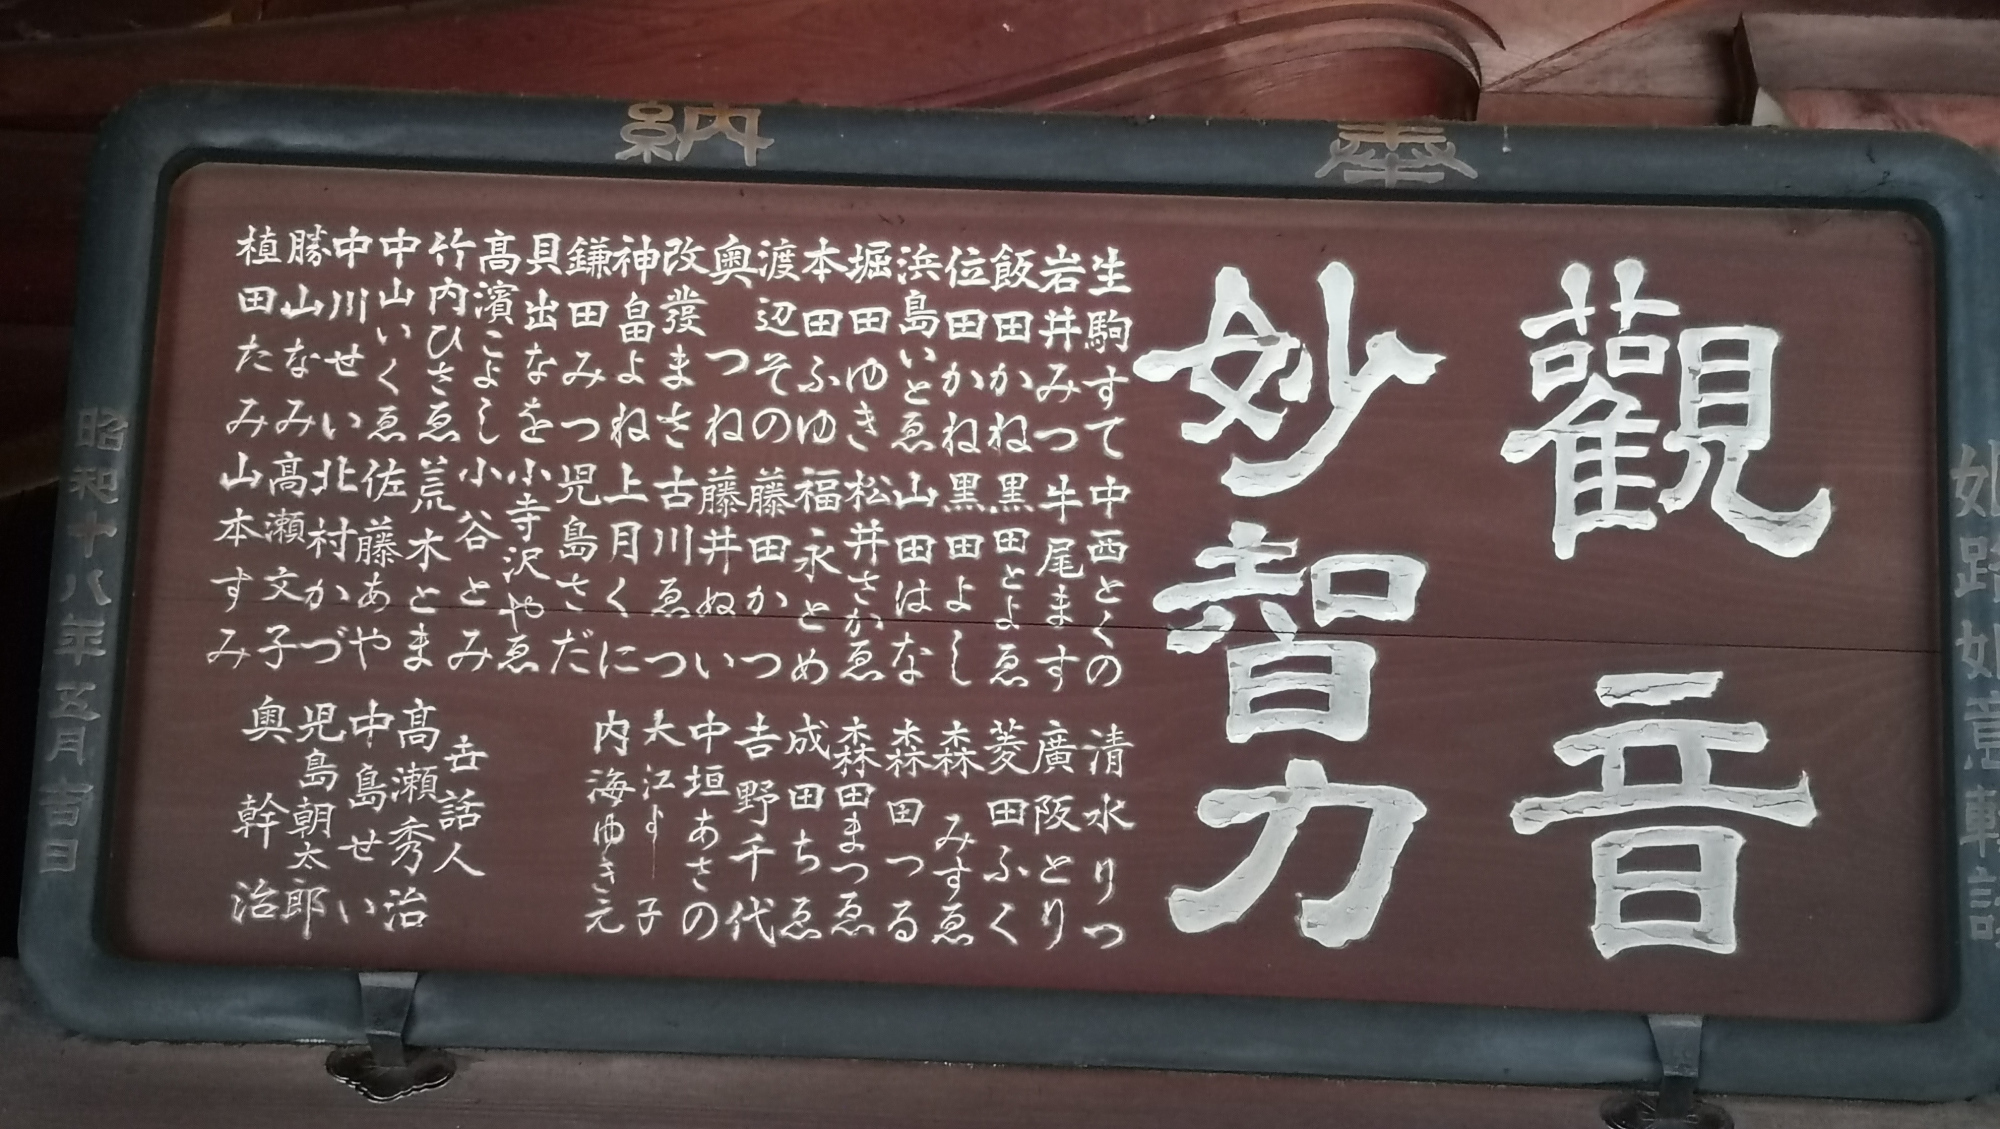 奉納
姫路姫意軒講
觀音
妙智力
生駒すて
岩井みつ
飯田かね
位田かね
浜島いとゑ
堀田ゆき
本田ふゆ
渡辺その
奥つね
改發まさ
神畠よね
鎌田みつ
具出なを
髙濱こよし
竹内ひさゑ
中山いくゑ
中川せい
勝山なみ
植田たみ
中西とくの
牛尾ます
黒田とよゑ
黒田よし
山田はな
松井さかゑ
福永とめ
藤田かつ
藤井ぬい
古川ゑつ
上月くに
児島さだ
小寺沢やゑ
小谷とみ
荒木とま
佐藤あや
北村かづ
髙瀬文子
山本すみ
清水りつ
廣阪とり
菱田ふく
森みすゑ
森田つる
森田まつゑ
成田ちゑ
吉野千代
中垣あさの
大江よし子
内海ゆき元
世話人
髙瀬秀治
中島せい
児島朝太郎
奥幹治
昭和十八年五月吉日